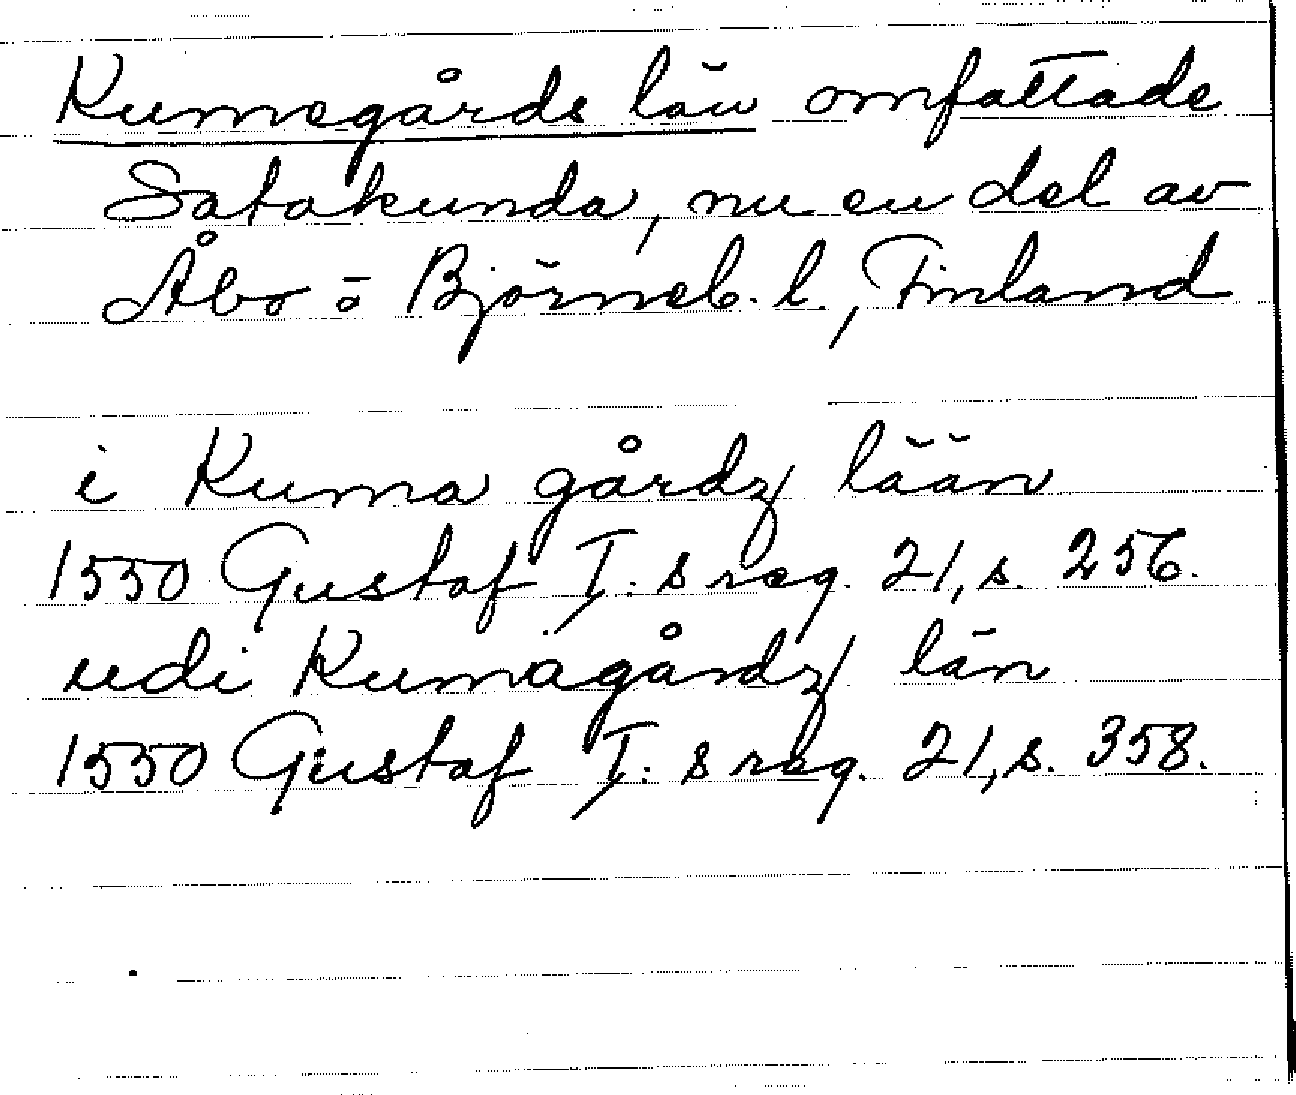 Kumogårds län omfattade
Satakunda, nu en del av
Åbo o Björneb. l., Finland
i Kuma gårdz lään
1550 Gustaf I:s reg. 21, s. 256.
udi Kumagårdz län
1550 Gustaf I:s reg. 21, s. 358.